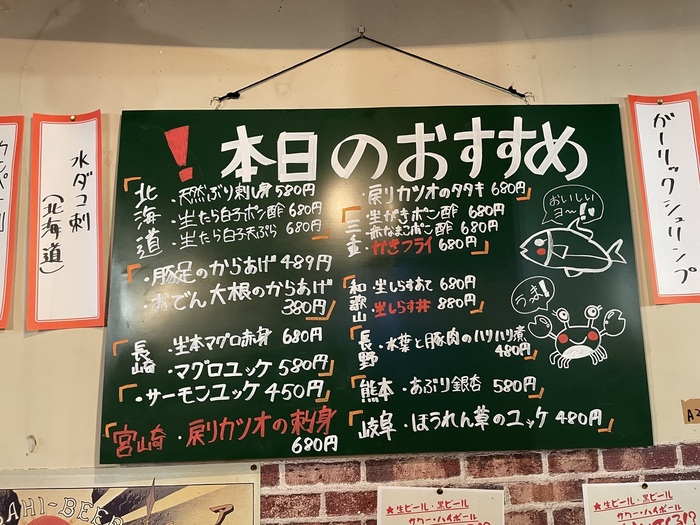 ！本日のおすすめ
北海道
・天然ぶり刺し身 580円
・生たら白子ポン酢 680円
・生たら白子天ぷら 680円
・豚足のからあげ 489円
・おでん大根のからあげ
380円
長崎
・生本マグロ赤身 680円
・マグロユッケ 580円
・サーモンユッケ 450円
宮崎・戻りカツオの刺身
680円
・戻りカツオのタタキ 680円
三重
・生がきポン酢 680円
・赤なまこポン酢 680円
・かきフライ 680円
和歌山
・生しらすあて 680円
・生しらす丼 880円
長野
・水菜と豚肉のハリハリ煮
480円
熊本・あぶり銀杏 580円
岐阜・ほうれん草のユッケ 480円
おいしい
ヨ〜!!
うまっ!
水ダコ刺
(北海道)
ガーリックシュリンプ
AHI-BEER
★生ビール・黒ビール
サワー・ハイボール
★生ビール・黒ビール
サワー・ハイボール